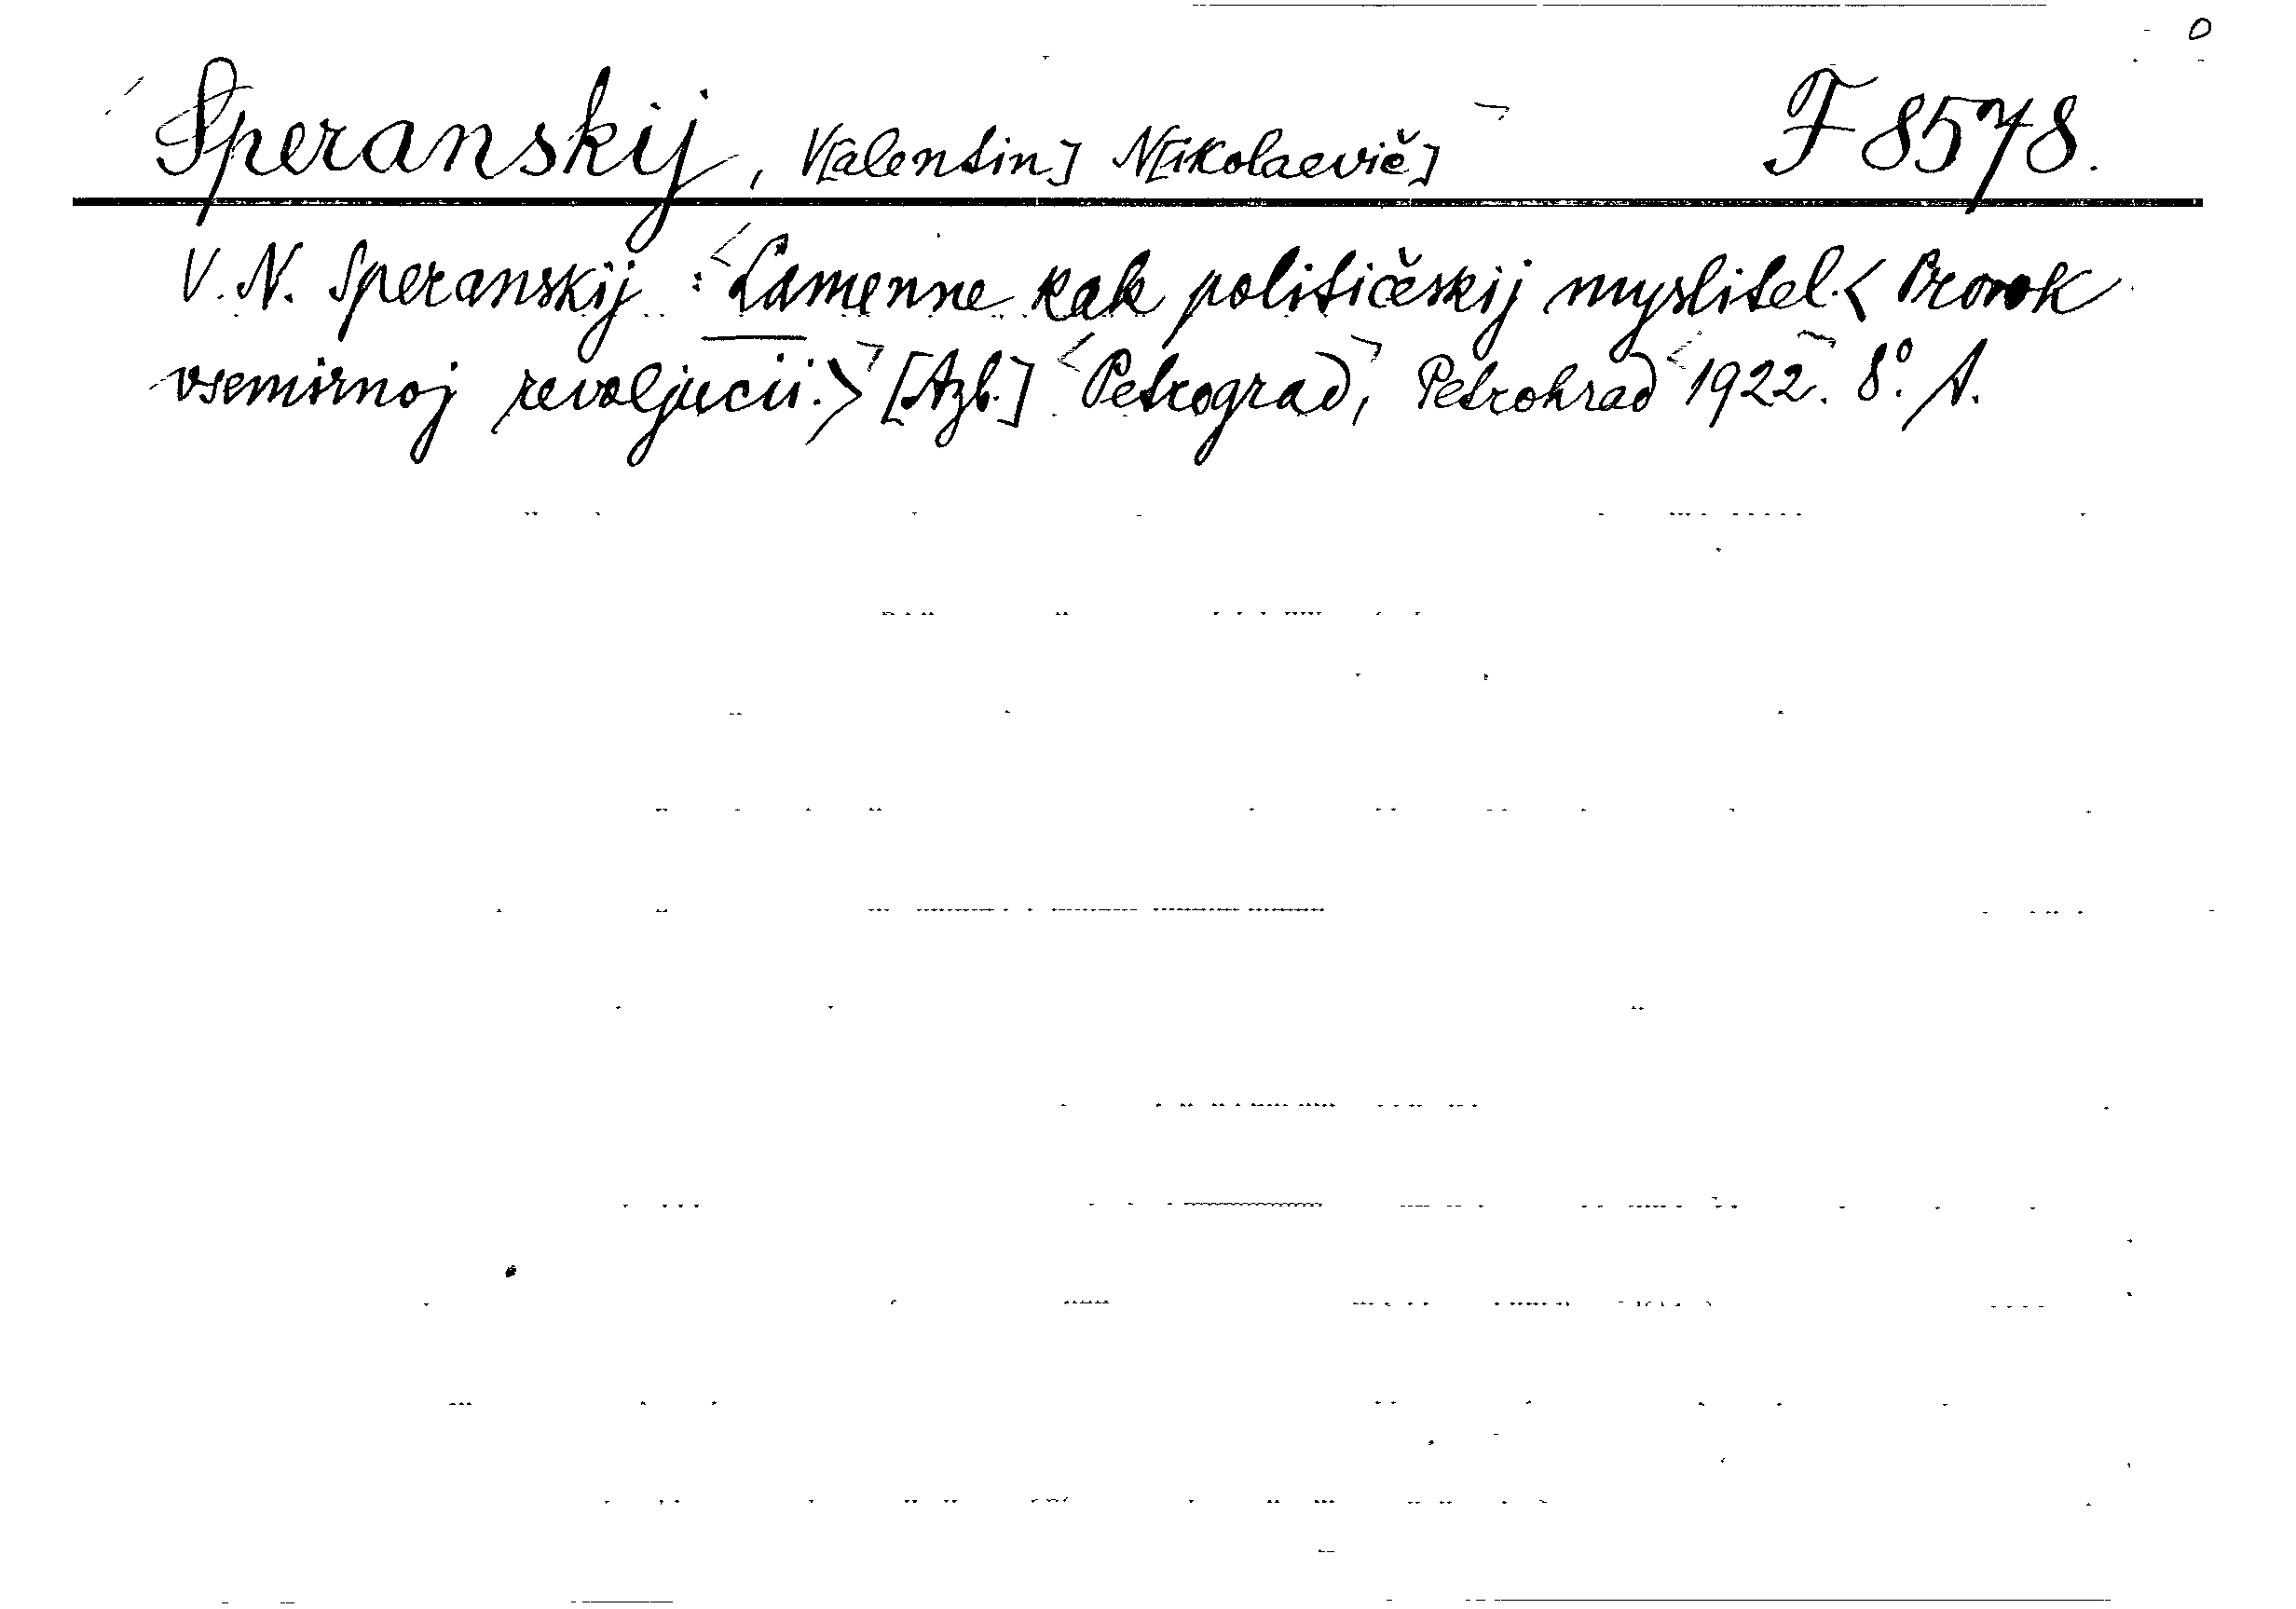 Speranskij, V[alentin] N[ikolaevič] F 8578.
V. N. Speranskij: Lamenne kak političeskij myslitel.< Prorok
vsemirnoj revoljucii.> [Azb.] Petrograd, Petrohrad 1922. 8°. A.